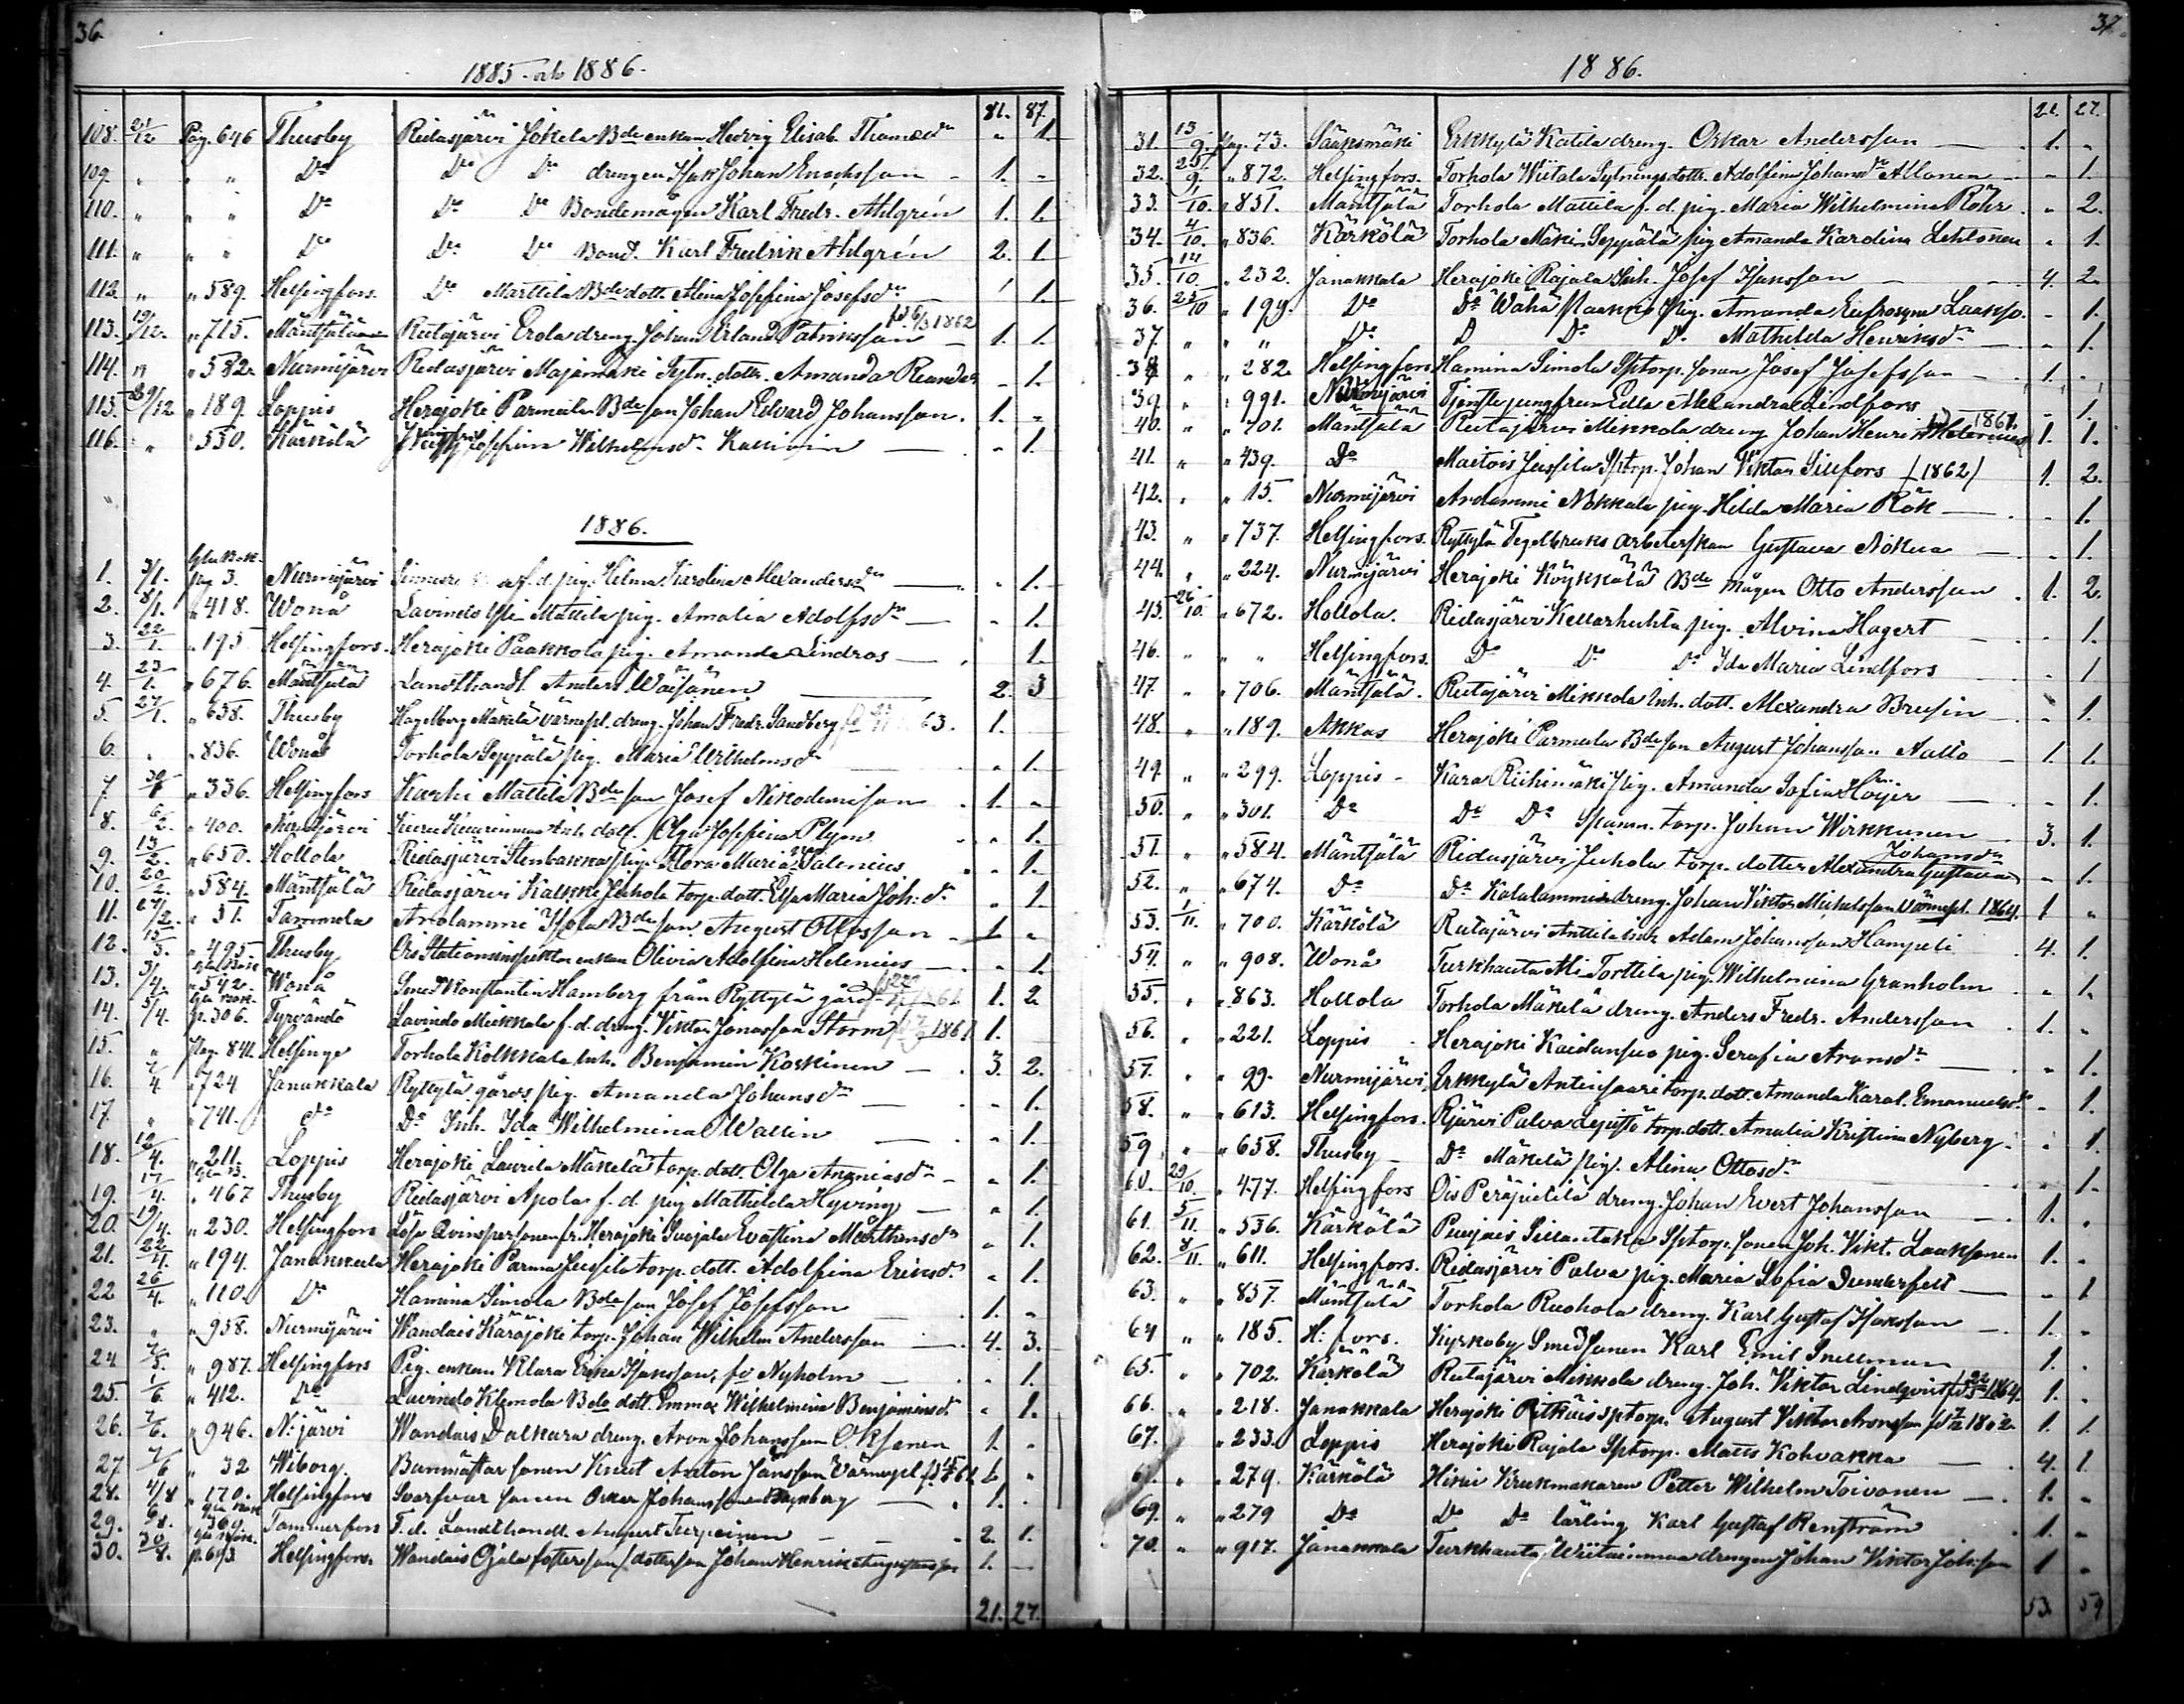 36.
1885. och 1886.
81. 87.
108. 21/12 Pag. 646 Thusby Ridasjärvi Jokela Bde enkan Hedvig Elisab. Thomasdr " 1.
109. " " " Do Do Do drengen Isak Johan Enochsson 1. "
110. " " " Do Do Do Bondemågen Karl Fredr. Ahlgrén 1. 1.
111. " " " Do Do Do Bond. Karl Fredrik Ahlgrén 2. 1.
112. " " 589. Helsingfors. Do Marttila Bde dott. Alina Josefina Josefsdr 1.
113. 19/12. " 715. Mäntsälä Ridasjärvi Erola dreng Johan Erland Patriksson fd 6/3 1862 1. 1.
114. " " 582. Nurmijärvi Ridasjärvi Majamäki Sytn. dottr. Amanda Reander " 1.
115. 29/12 " 189. Loppis Herajoki Parmala Bde son Johan Edvard Johansson. 1. "
116. " " 530. Kärkölä Josefina Wilhelmsdr " 1.
1886.
1. 3/1. pag 3. Nurmijärvi f. d. pig. Helma Karolina Alexandersdr " 1.
2. 8/1. " 418. Wonå Lavindo Yli Mattila pig. Amalia Adolfsdr " 1.
3. 22/1. " 195 Helsingfors. Herajoki Paakkola pig. Amanda Lindros 1.
4. 23/1. " 676. Mäntsälä Landthandl. Anders Wäisänen 2. 3
5. 27/1. " 658. Thusby Hagelberg Mäkelä värnepl. dreng. Johan Fredr. Sandberg 63. 1.
6. " " 836. Wonå Torhola Seppälä pig. Maria Wilhelmsdr " 1.
7. 30/1 " 336. Helsingfors Karhi Mattila Bde son Josef Nikodemison 1. "
8. 6/2. " 400. Nurmijärvi Inh. dott. Olga Josefina Plym " 1.
9. 13/2. " 650. Hollola Ridasjärvi Stenbakka pig. Flora Maria Salenius " 1.
10. 20/2. " 584. Mäntsälä Ridasjärvi Kalkki Juhola torp. dott. Elsa Maria Joh. dr " 1.
11. 27/2. " 31. Tammela Arolammi Isola Bde son August Ottosson 1. "
12. 15/3. " 495 Thusby Ois Stationsinspektor enkan Olivia Adolfina Helenius " 1.
13. 3/4. " 542. Wonå Smed Konstantin Hamberg från Ryttylä gård 1. 2.
14. 5/4. p. 306. Tyrvändö Lavindo Mikkola f. d. dreng. Viktor Jonasson Storm 1861 1.
15. " Pag. 841. Helsinge Torhola Kolkkala inh. Benjamin Koskinen 3. 2.
16. 7/4 " 724 Janakkala Ryttylä gårds pig. Amanda Johansdr " 1.
17. " " 741. do Do Inh. Ida Wilhelmina Wallin " 1.
18. 12/4. " 211. Loppis Herajoki Laurila Mäkelä torp. dott. Olga Ananiasdr " 1.
19. 17/4. " 467 Thusby Ridasjärvi Apola f. d. pig Mathilda Hyving " 1.
20. 19/4. " 230. Helsingfors Lösa Qvinspersonen fr. Herajoki Suojala Evastina Mårthensdr " 1.
21. 22/4. " 194. Janakkala Herajoki Parma Jussila torp. dott. Adolfina Eriksdr " 1.
22 26/4. " 110. Do Hamina Simola Bde son Josef Josefsson 1. "
23. " " 958. Nurmijärvi Wandais Käräjoki torp. Johan Wilhelm Andersson 4. 3.
24 7/5. " 987. Helsingfors Pig. enkan Klara Erika Isaksson, fd Nyholm " 1.
25. 1/6 " 412. Do Lavindo Klemola Bde dott. Emma Wilhelmina Benjaminsdr " 1.
26. 7/6. " 946. N:järvi Wandais Dalkara dreng. Aron Johansson Oksanen 1. "
27. 7/6 " 32 Wiborg. Banmästar sonen Knut Anton Jansson Värnepl. 1. "
28. 4/8 " 170. Helsingfors Svarfvar sonen Oskar Johansson 1. "
29. 6/8. " 360. Tammerfors F. d. Landthandl. August Turpeinen 2. 1.
30. 30/8. p. 693 Helsingfors. Wandais Ojala fosterson/dotterson Johan Henrik Augustsson 1. "
21. 27.
37.
1886.
21. 27.
31. 13/9. Pag. 73. Sääksmäki Erkkylä Katila dreng. Oskar Andersson 1. "
32. 25/9. " 872. Helsingfors. Torhola Wiitala Sytningsdottr. Adolfina Johansdr Allonen " 1.
33. 1/10. " 831. Mäntsälä Torhola Mattila f. d. pig. Maria Wilhelmina Röhr " 2.
34. 4/10. " 836. Kärkölä Torhola Mäki Seppälä pig Amanda Karolina Lehtonen " 1.
35. 14/10. " 232. Janakkala Herajoki Rajala Inh. Josef Isaksson 4. 2.
36. 23/10 " 199. Do Do Waha Paakko pig. Amanda Eufrosyna Laakso. " 1.
37. " " " Do D Do Do Mathilda Henriksdr " 1.
38 " " 282. Helsingfors Hamina Simola Sptorp. sonen Josef Josefsson 1. "
39. " " 991. Nurmijärvi Tjenstejungfrun Edla Alexandra Lindfors " 1.
40. " " 701. Mäntsälä Ridasjärvi Mikkola dreng Johan Henrik Helenius 1861. 1. 1.
41. " " 439. Do Maitois Jussila Sptorp. Johan Viktor Silfors (1862) 1. 2.
42. " " 15. Nurmijärvi Arolammi Nokkala pig. Hilda Maria Rök " 1.
43. " " 737. Helsingfors. Ryttylä Tegelbruks arbeterskan Gustava Nokua " 1.
44. " " 224. Nurmijärvi Herajoki Köykkälä Bde mågen Otto Andersson 1. 2.
45. 26/10. " 672. Hollola. Ridasjärvi Kellarhuhta pig. Alvina Hagert " 1.
46. " " " Helsingfors. Do Do Do Ida Maria Lindfors " 1
47. " " 706. Mäntsälä. Ridasjärvi Mikkola Inh. dott. Alexandra Brusin " 1.
48. " " 189. Akkas Herajoki Parmala Bde son August Johansson Aalto 1. 1.
49. " " 299. Loppis Kara Riihimäki pig. Amanda Sofia Höijer " 1.
50. " " 301. Do Do Do Spann. torp. Johan Wirkkunen 3. 1.
51. " " 584. Mäntsälä Ridasjärvi Juhola torp. dotter Alexandra Gustava Johansdr " 1.
52. " " 674. Do Do Kalalammi dreng. Johan Viktor Michelsson Värnepl. 1864. 1 "
53. 1/11. " 700. Kärkölä Ridasjärvi Anttila inh. Adam Johansson Hampuli 4. 1.
54. " " 908. Wonå Turkhauta Ali Torttila pig. Wilhelmina Granholm " 1.
55. " " 863. Hollola Torhola Mäkelä dreng. Anders Fredr. Andersson 1. "
56. " " 221. Loppis Herajoki Kaidansuo pig. Serafia Aronsdr " 1.
57. " " 99. Nurmijärvi Erkkylä Antinsaari torp. dott. Amanda Karol. Emanuelsdr " 1.
58. " " 613. Helsingfors. Rjärvi Palva torp. dott. Amalia Kristina Nyberg " 1.
59 " " 658. Thusby Do Mäkelä pig. Alina Ottosdr " 1.
60. 29/10 " 477. Helsingfors Ois Peräpietilä dreng. Johan Evert Johansson 1. "
61. 5/11. " 536. Kärkölä Punjais Sillantaka Sptorp. sonen Joh. Vikt. Laaksonen 1. "
62. 8/11. " 611. Helsingfors. Ridasjärvi Palva pig. Maria Sofia " 1
63. " " 857. Mäntsälä Torhola Ruohola dreng. Karl Gustaf Isaksson 1. "
64 " " 185. H:fors. Kyrkoby Smedsonen Karl Emil Snellman 1. "
65. " " 702. Kärkölä Ridasjärvi Mikkola dreng. Joh. Viktor Lindqvist 1864. 1. "
66. " " 218. Janakkala Herajoki Pitkäis sptorp. August Viktor Aronsson 1862. 1. 1.
67. " 233. Loppis Herajoki Rajala Sptorp. Matts Kohvakka 4. 1.
68. " " 279. Kärkölä Hikiä Krukmakaren Petter Wilhelm Toivonen 1. "
69. " " 279 Do Do Do lärling Karl Gustaf Renström 1. "
70. " " 917. Janakkala Turkhauta Wiitainmaa drengen Johan Viktor Johsson 1 "
53. 59